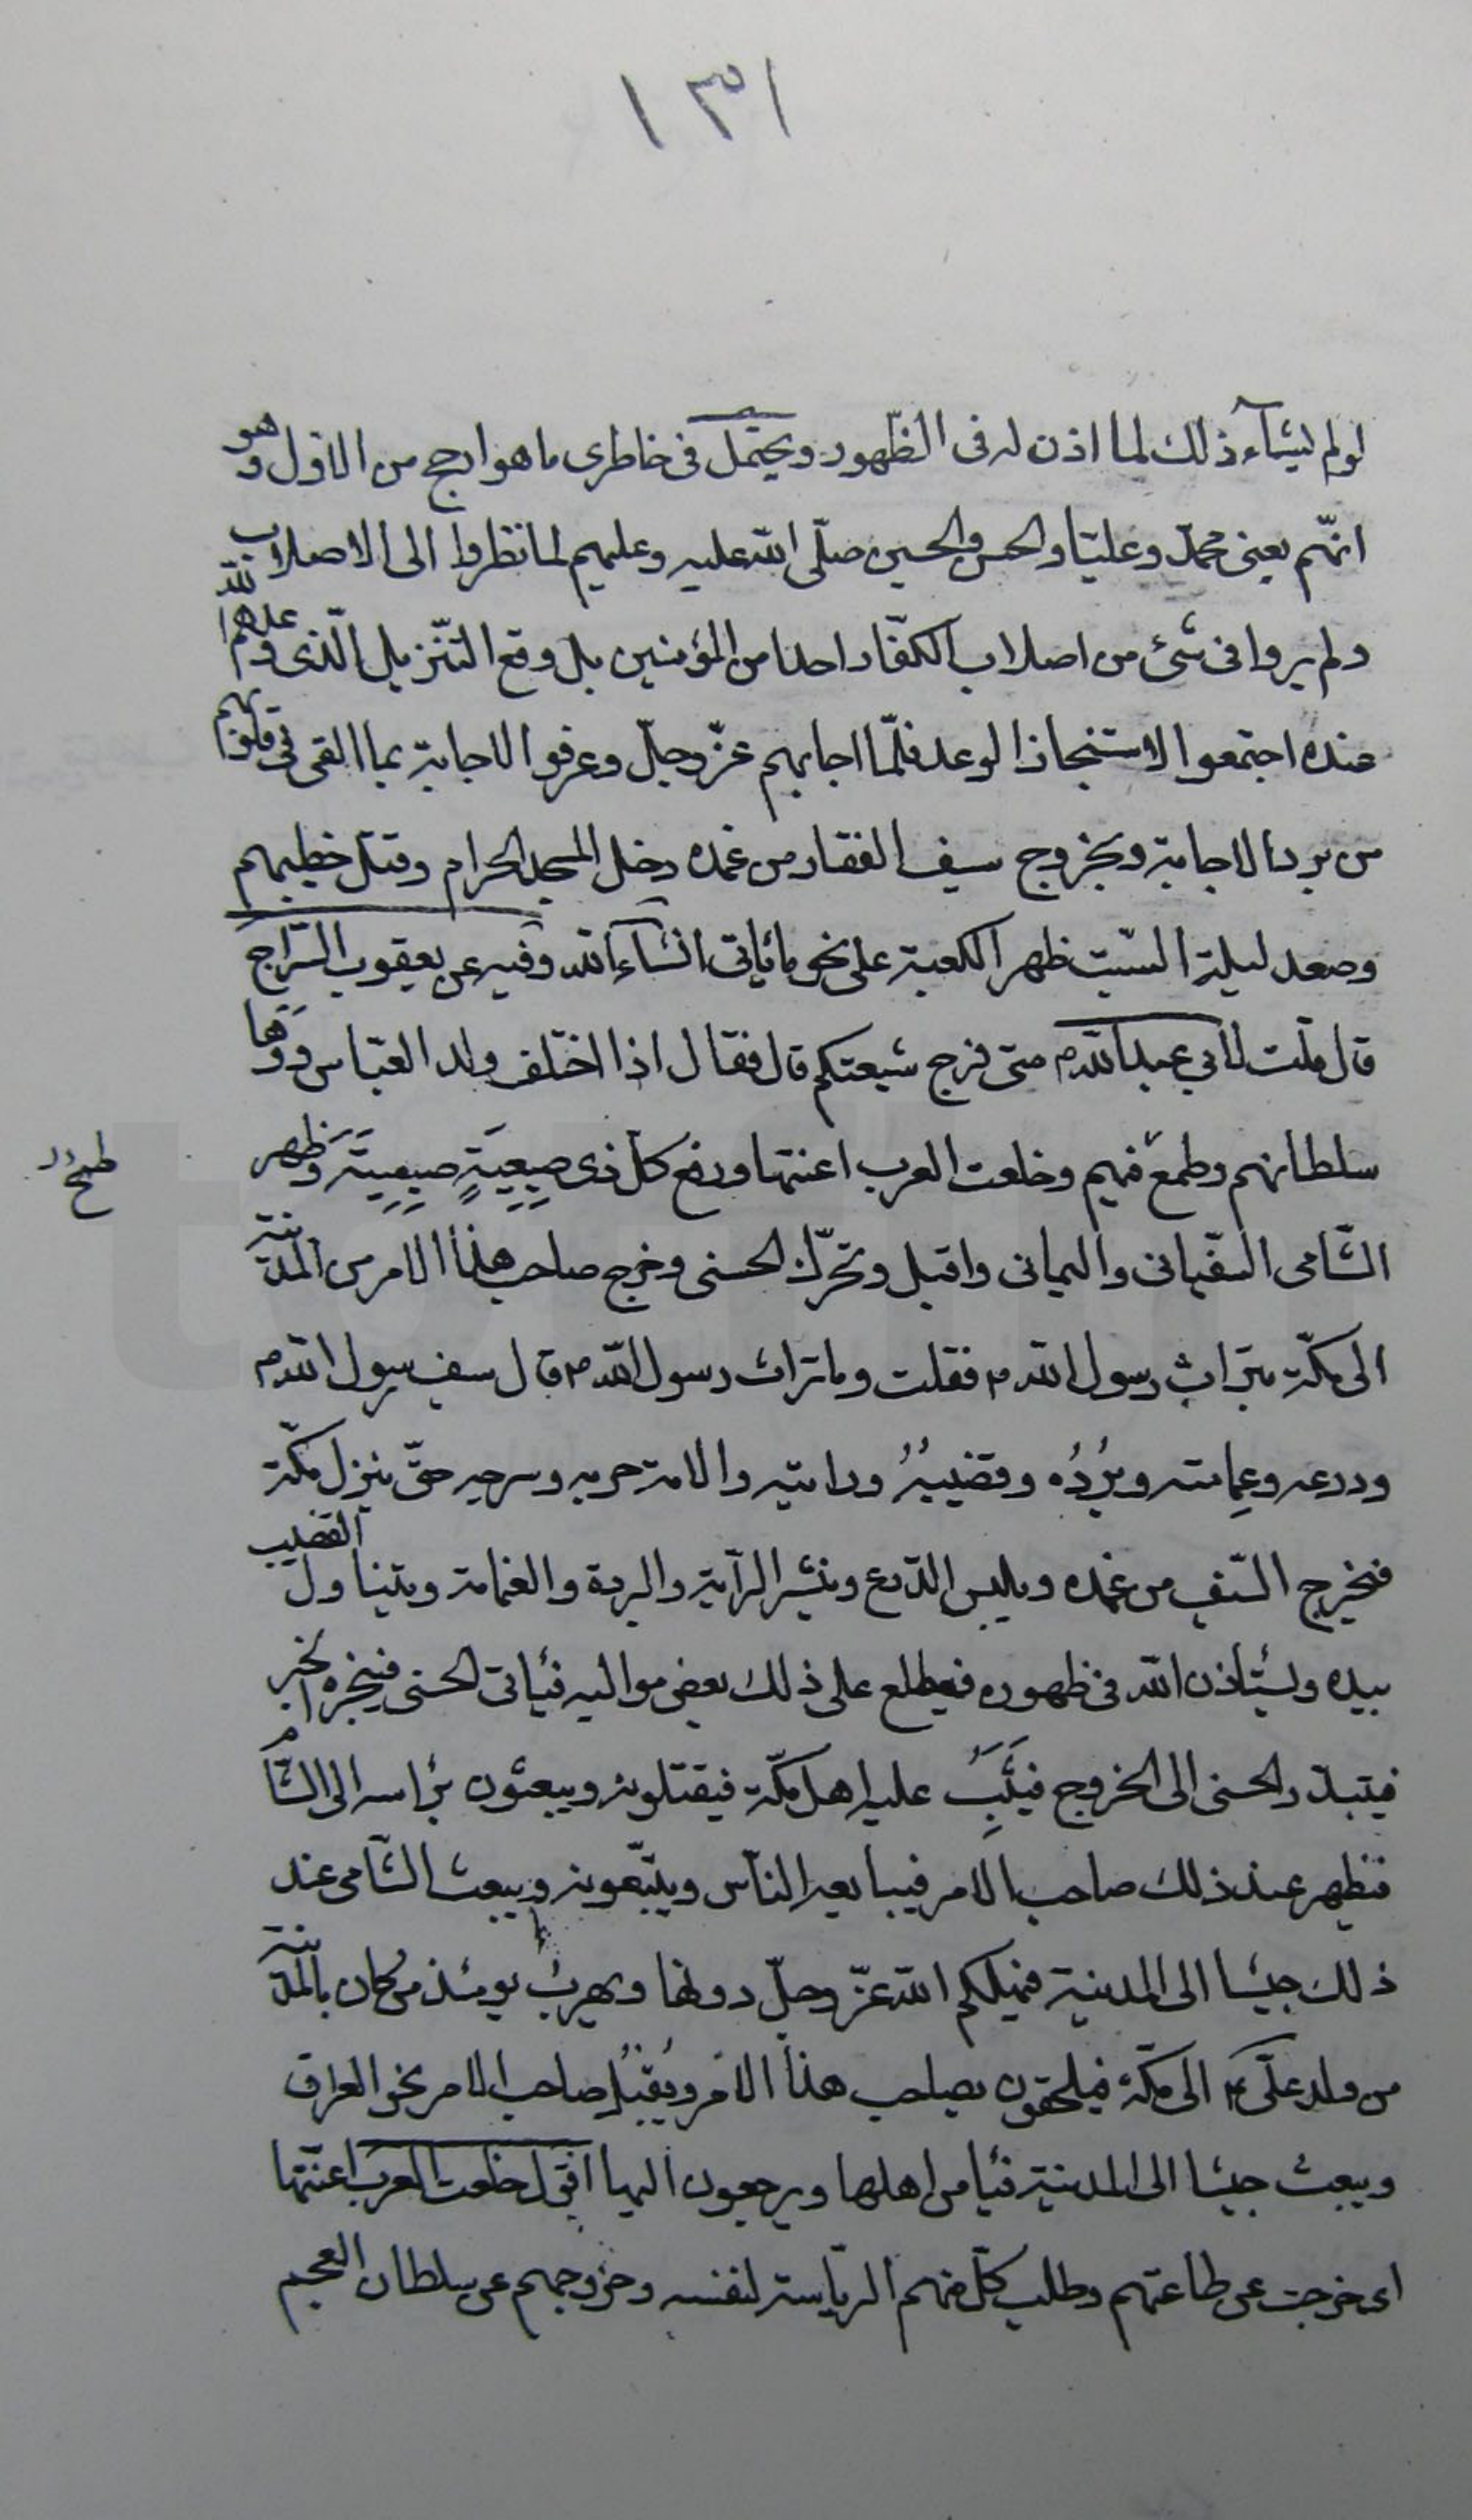 ١٣١
لو لم يشآء ذلك لما اذن له فى الظّهور ويحتمل فى خاطرى ما هو ارجح من الاوّل وهو
انّهم يعنى محمّد وعليّا والحسن والحسين صلّى الله عليه وعليهم لما نظروا الى الاصلاب
ولم يروا فى شئ من اصلاب الكفّار احدا من المؤمنين بل وقع التنّزيل الّذى وعدهم الله
عنده اجتمعوا لاستنجاز الوعد فلمّا اجابهم عزّ وجلّ وعرفوا الاجابة بما القى فى قلوبهم
من برد الاجابة وبخروج سيف الفقار من غمده دخل المسجد الحرام وقتل خطيبهم
وصعد ليلة السّبت ظهر الكعبة على نحو ما يأتى انشاء الله وفيه عن يعقوب السّراج
قال قلت لابي عبد الله م متى فرج شيعتكم قال فقال اذا اختلف ولد العبّاس ووها
سلطانهم وطمع فيهم وخلعت العرب اعنتها ورفع كلّ ذى صيصيةٍ صيصيته وظهر
الشّامى السّفيانى واليمانى واقبل وتحرّك الحسنى وخرج صاحب هذا الامر من المدينة
الى مكّة بتراث رسول الله م فقلت وما تراث رسول الله م قال سيف رسول الله م
ودرعه وعِمامته وبُرْدُه وقضيبُهُ ورايته والامة حربه وسرجه حتّى ينزل مكّة
فيخرج السّيف من غمده ويلبس الدّرع وينشر الرّاية والبردة والعمامة ويتناول القضيب
بيده ويستأذن الله فى ظهوره فيطلع على ذلك بعض مواليه فيأتى الحسنى فيخبره الخبر
فيتبدّر الحسنى الى الخروج فيَثِبُ عليه اهل مكّة فيقتلونه ويبعثون برأسه الى الشّام
فيظهر عند ذلك صاحب الامر فيبايعه النّاس ويتّبعونه ويبعث الشّامى عند
ذلك جيشا الى المدينة فيهلكهم الله عزّ وجلّ دونها ويهرب يومئذ من كان بالمدينة
من ولد علىّ ع الى مكّة فيلحقون بصاحب هذا الامر ويُقْبِلُ صاحب الامر نحو العراق
ويبعث جيشا الى المدينة فيأمن اهلها ويرجعون اليها اقول خلعت العرب اعنّتها
اى خرجت عن طاعتهم وطلب كلّ منهم الرّياسة لنفسه وخروجهم عن سلطان العجم